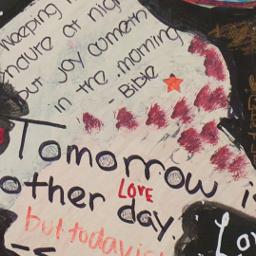 Weeping
endure at nigh
but joy cometh
in the morning
- Bible
Tomorrow is
other day.
LOVE
but today is
Lo